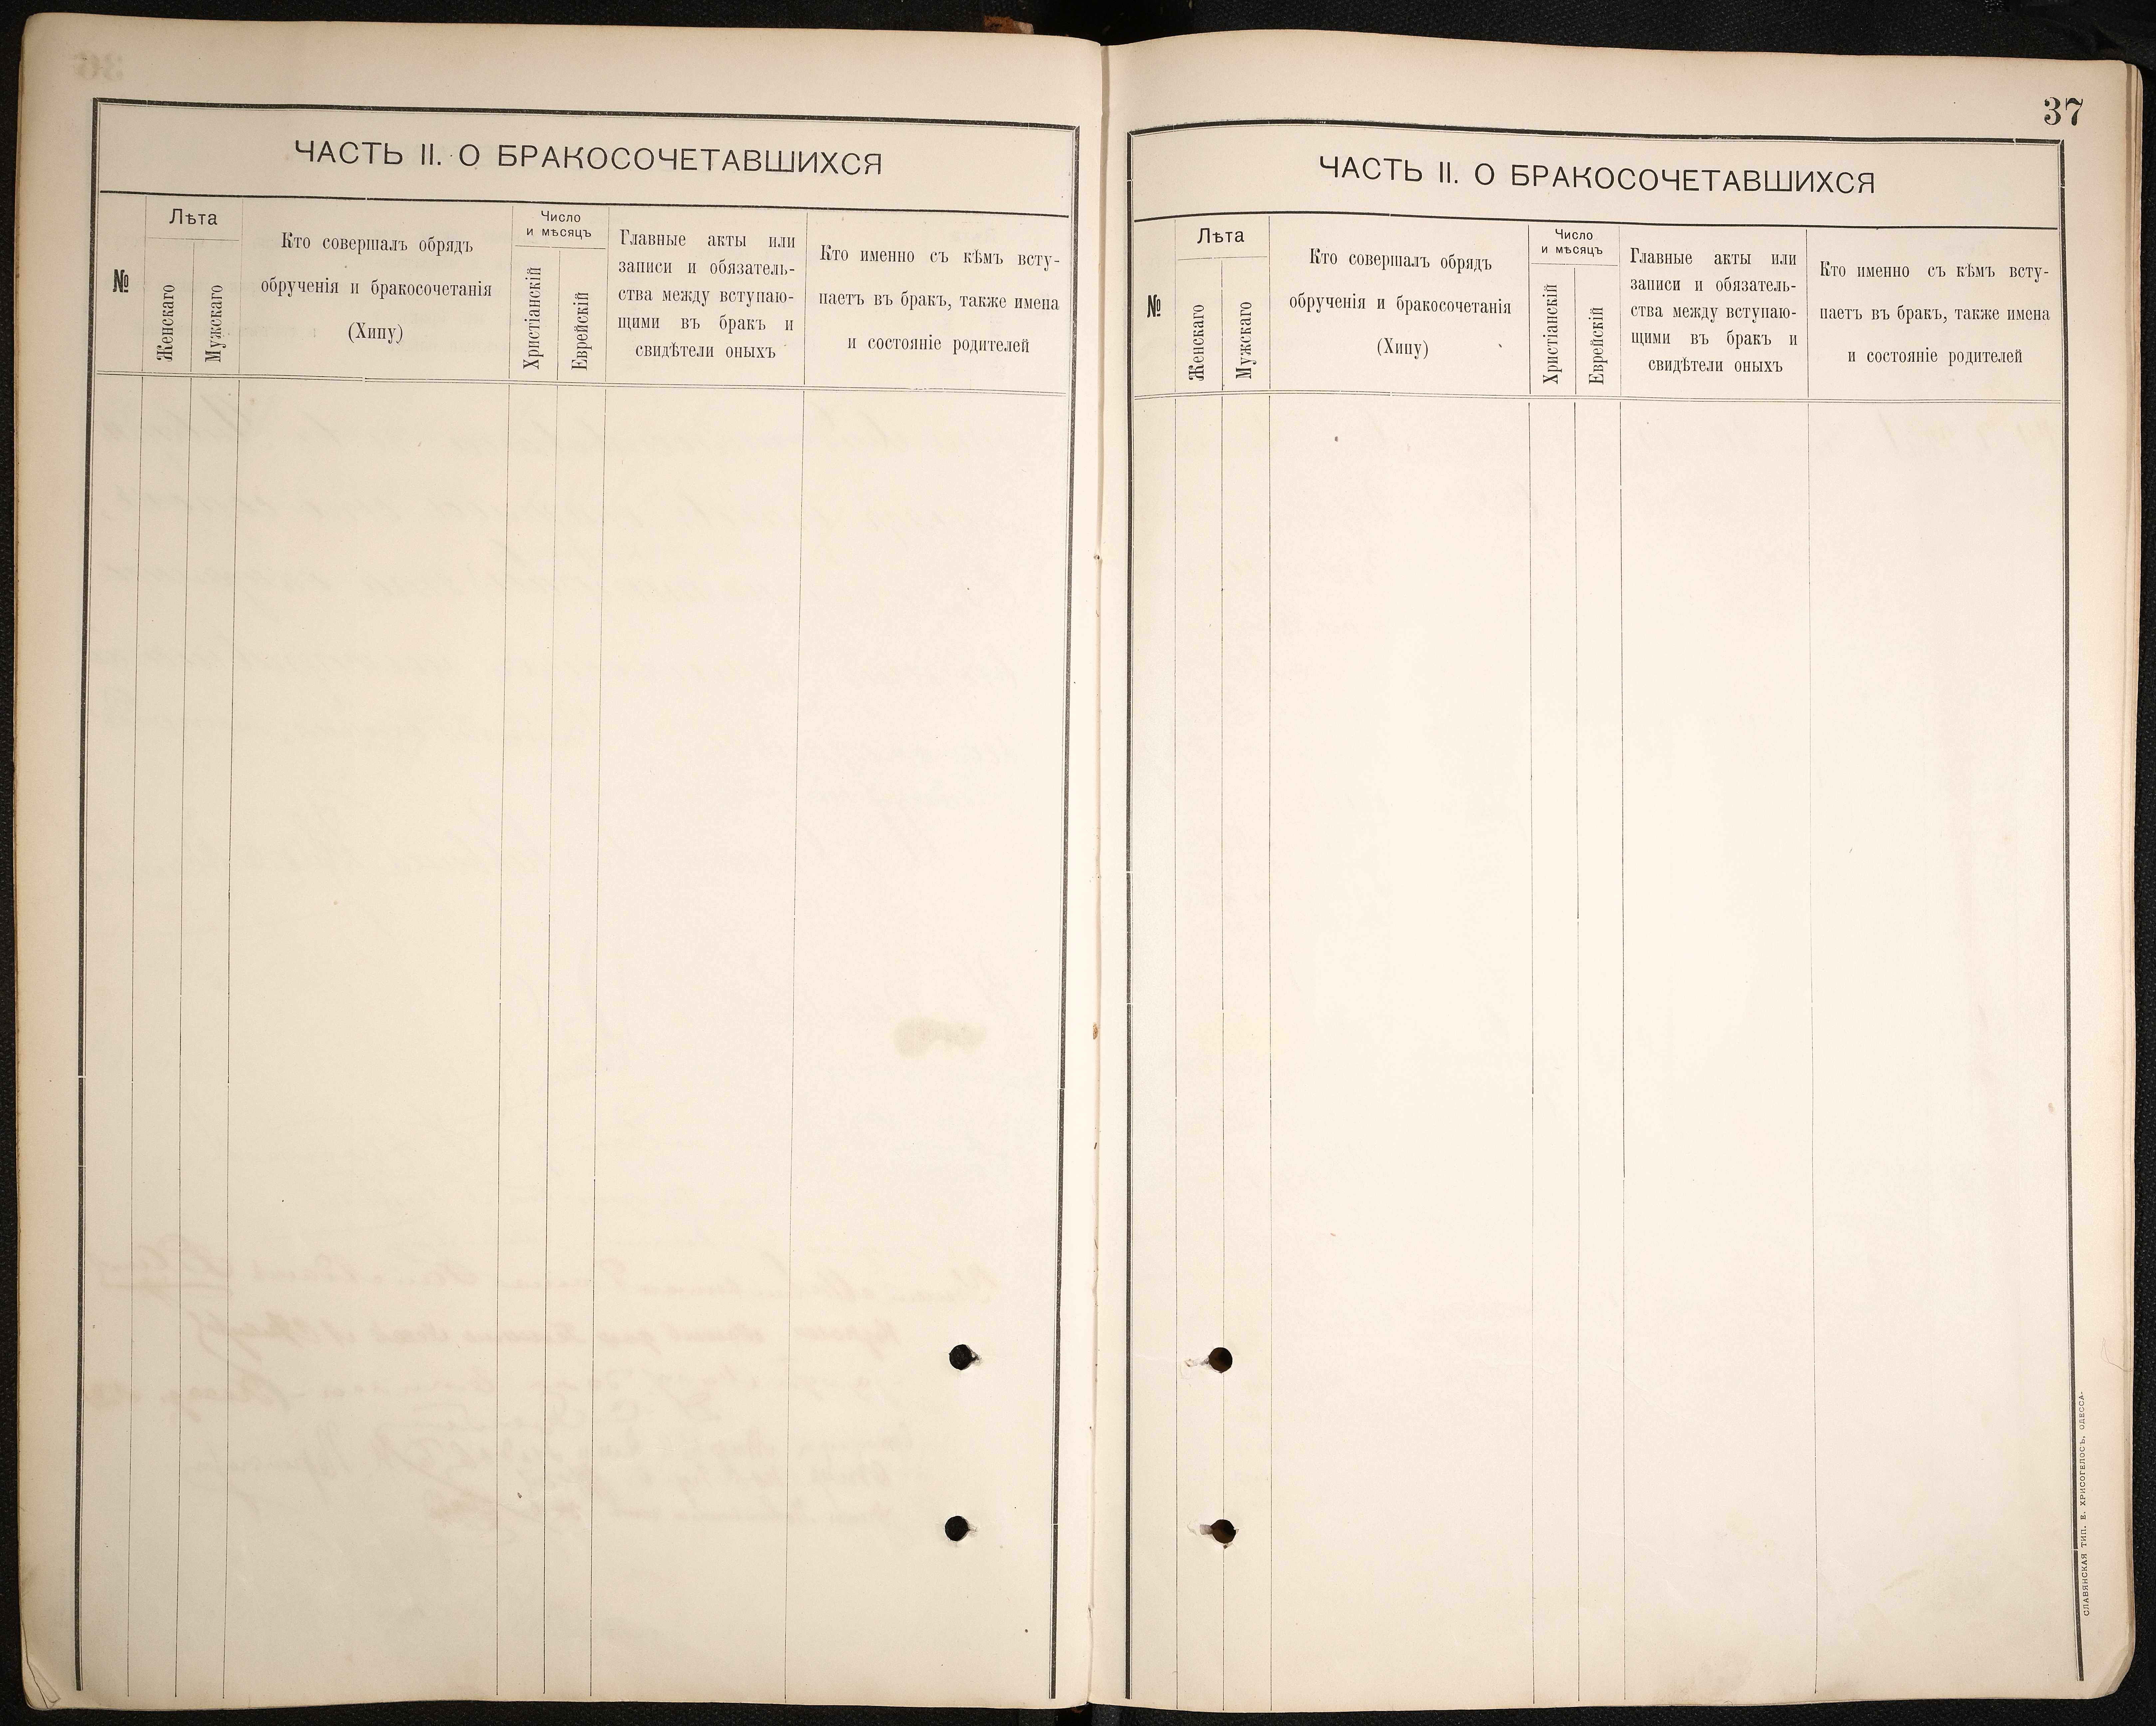 ЧАСТЬ II. О БРАКОСОЧЕТАВШИХСЯ
№
Лѣта
Женскаго
Мужскаго
Кто совершалъ обрядъ
обрученія и бракосочетанія
(Хипу)
Число
и мѣсяцъ
Христіанскій
Еврейскій
Главные акты или
записи и обязатель-
ства между вступаю-
щими въ бракъ и
свидѣтели оныхъ
Кто именно съ кѣмъ всту-
паетъ въ бракъ, также имена
и состояніе родителей
37
ЧАСТЬ II. О БРАКОСОЧЕТАВШИХСЯ
№
Лѣта
Женскаго
Мужскаго
Кто совершалъ обрядъ
обрученія и бракосочетанія
(Хипу)
Число
и мѣсяцъ
Христіанскій
Еврейскій
Главные акты или
записи и обязатель-
ства между вступаю-
щими въ бракъ и
свидѣтели оныхъ
Кто именно съ кѣмъ всту-
паетъ въ бракъ, также имена
и состояніе родителей
СЛАВЯНСКАЯ ТИП. Е. ХРИСОГЕЛОСЪ, ОДЕССА-